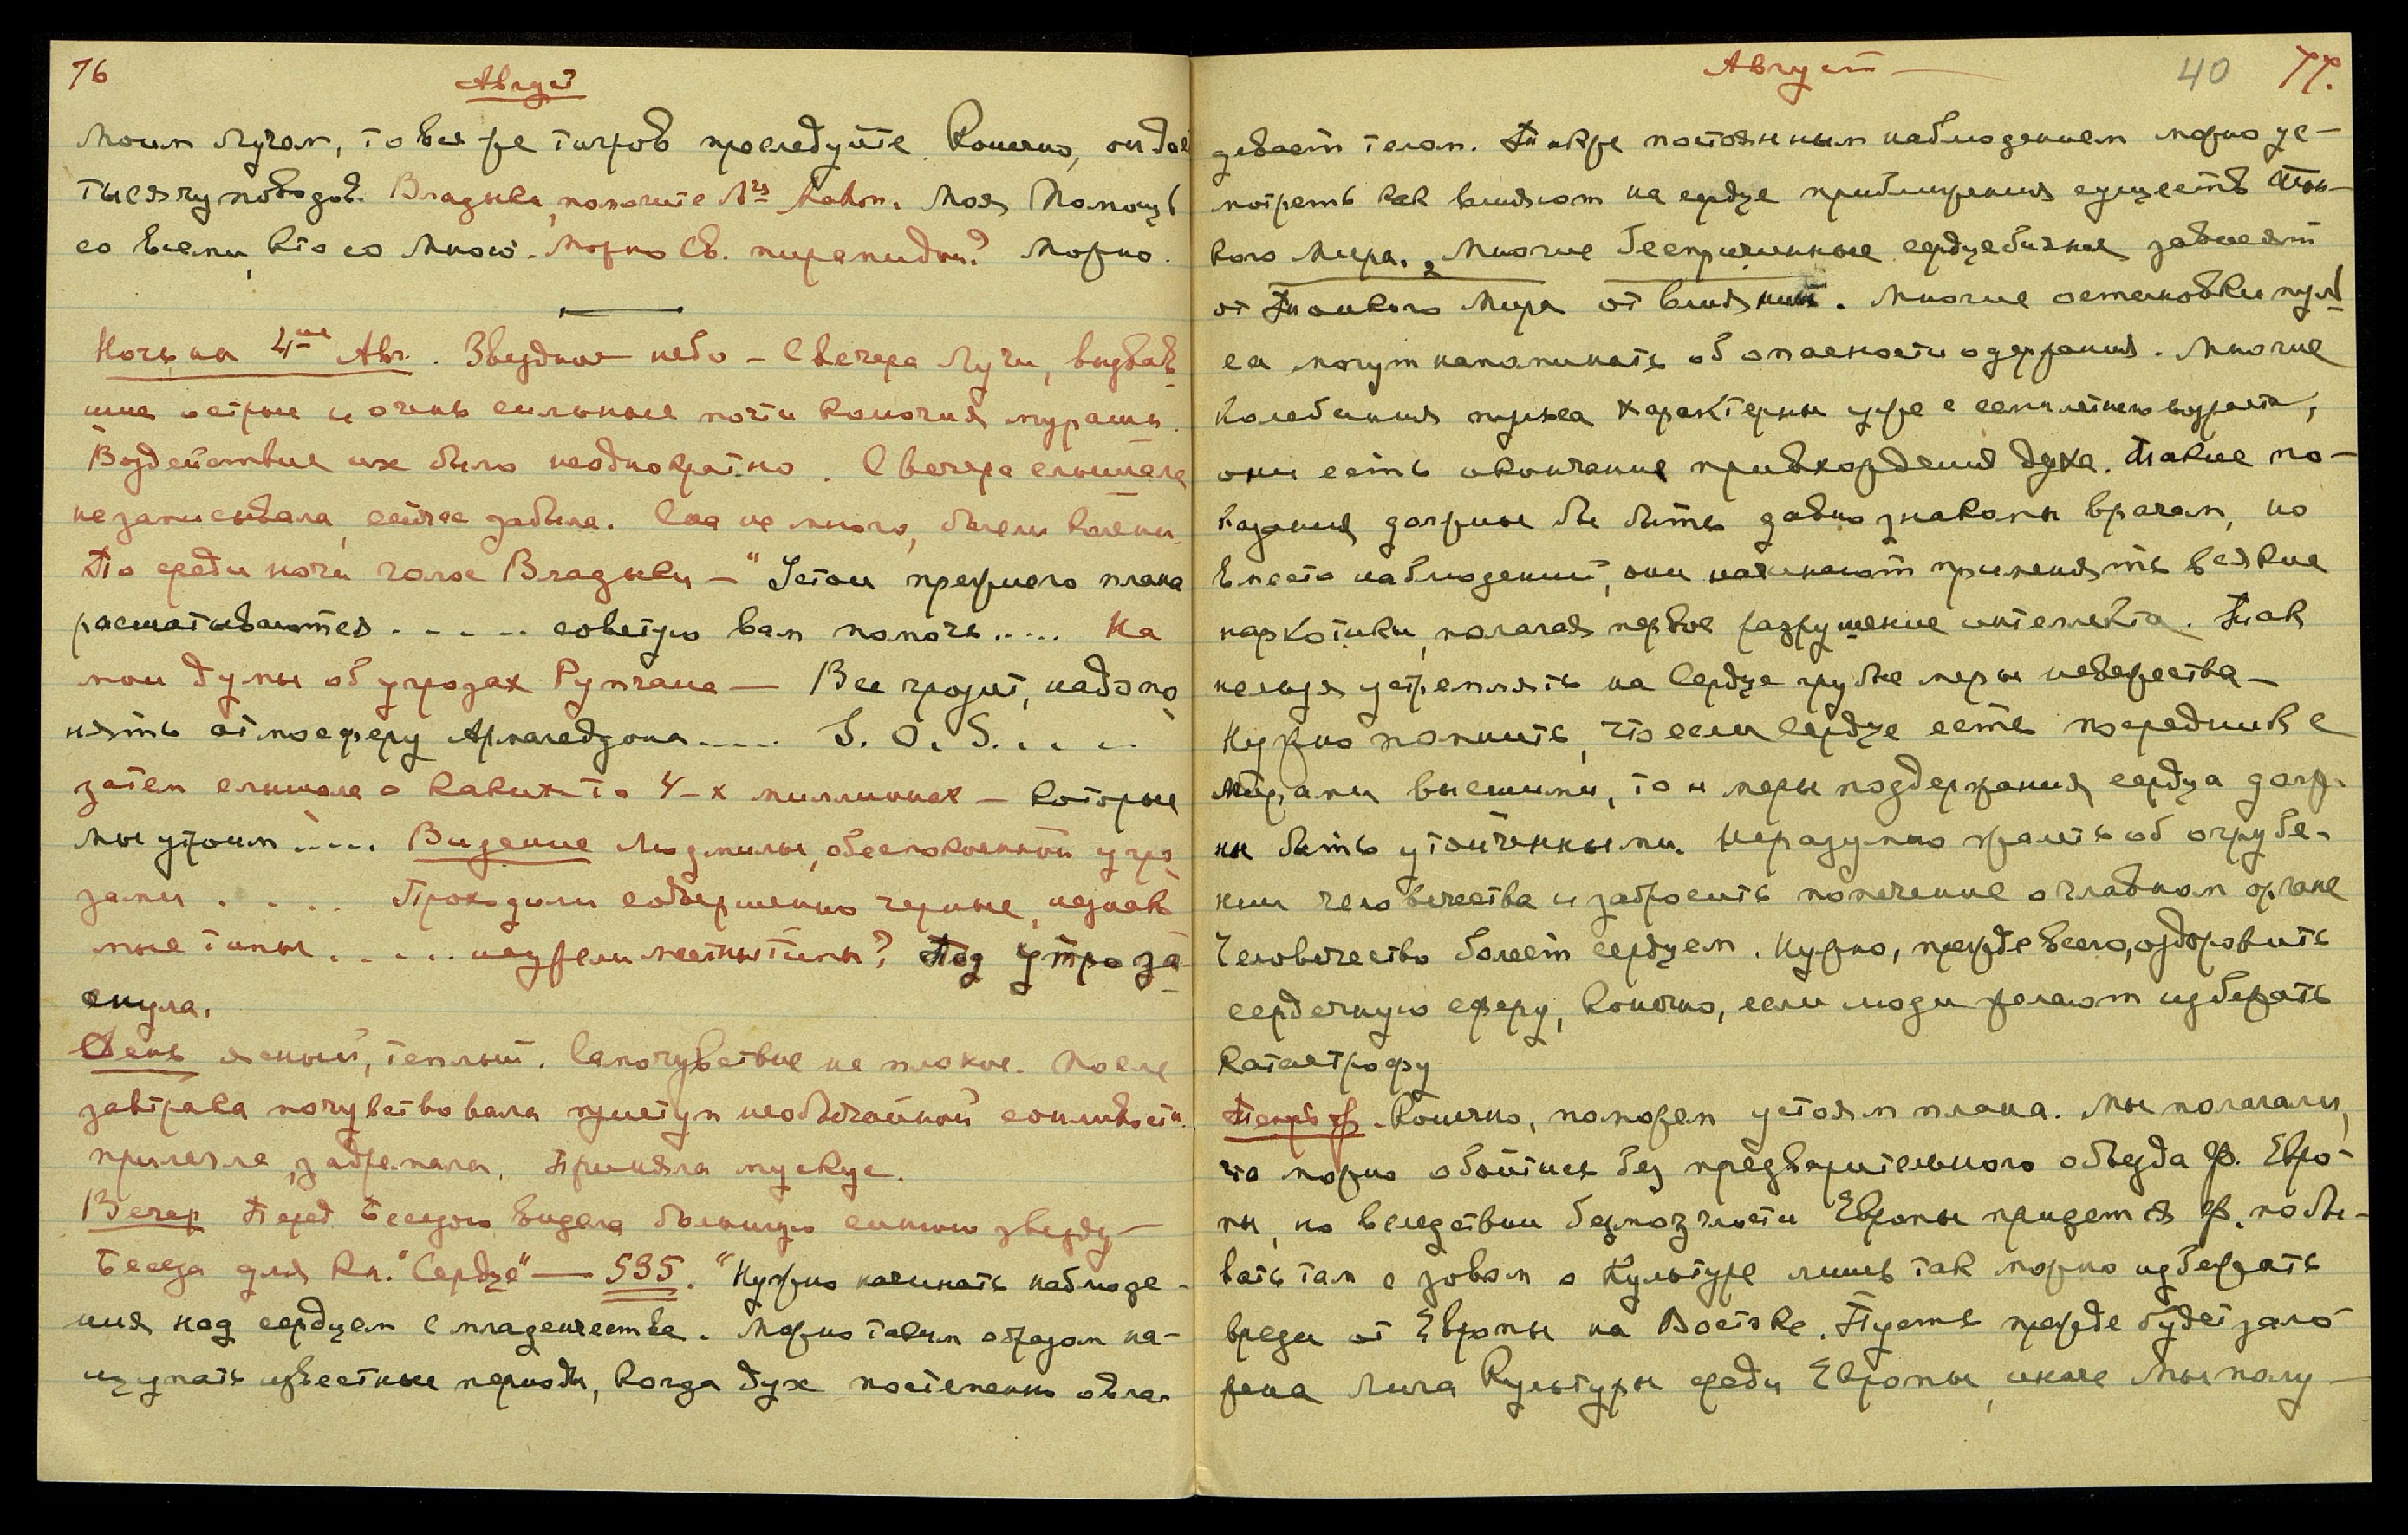 76
Август
Моим Лучам, то вы же тигров преследуйте. Конечно, он дает
тысячу поводов. Владыка, помогите Моя Помощь
со всеми, кто со Мною. Можно Св. пирамиды? Можно.
Ночь на 4ое Авг. Звездное небо – С вечера Лучи, вызвав
шие острые и очень сильные почти колючия мураши.
Воздействие их было неоднократно. С вечера слышала
не записывала, сейчас забыла. Сна не много, были
По среди ночи голос Владыки – "Устои прежнего плана
расшатываются ..... советую вам помочь ..... На
мои думы об угрозах – Все грозит, надо по
нять атмосферу Армагеддона ..... S. O. S. ....
затем слышала о каких то 4-х миллионах – которые
мы утроим ..... Видение Людмилы, обеспокоенной угро
зами .... Проходили совершенно черные, незнако
мые типы ..... неужели местные типы? Под утро за
снула.
День ясный, теплый. Самочувствие не плохое. После
завтрака почувствовала приступ необычайной сонливости.
прилегла, задремала. Приняла мускус.
Вечер Перед Беседою видела большую синюю звезду –
Беседа для Кн. "Сердце" — 535. "Нужно начинать наблюде-
ния над сердцем с младенчества. Можно таким образом на-
щупать известные периоды, когда дух постепенно овла-
Август
40 77.
девает телом. Также постоянным наблюдением можно ус-
мотреть как влияют на сердце приближения существ Тон-
кого Мира. Многие беспричинные сердцебиения зависят
от Тонкого Мира от влияний. Многие остановки пуль
са могут напоминать об опасности одержания. Многие
колебания пульса характерны уже с семилетнего возраста,
они есть окончание привхождения духа. Такие по-
казания должны бы быть давно знакомы врачам, но
вместо наблюдений, они начинают применять всякие
наркотики, полагая первое разрушение интеллекта. Так
нельзя устремлять на Сердце грубые меры невежества –
Нужно помнить, что если Сердце есть посредник с
Мирами высшими, то и меры поддержания сердца долж-
ны быть утонченными. Неразумно жалеть об огрубе-
нии человечества и забросить попечение о главном органе
Человечество болеет сердцем. Нужно, прежде всего, оздоровить
сердечную сферу, конечно, если люди желают избежать
катастрофу
Теперь Ф. Конечно, поможем устоям плана. Мы полагали,
что можно обойтись без предварительного объезда Ф. Евро-
пы, но вследствии безмозглости Европы придется Ф. побы-
вать там с зовом о Культуре лишь так можно избежать
вреда от Европы на Востоке. Пусть прежде будет зало
жена Лига Культуры среди Европы, иначе Мы полу-